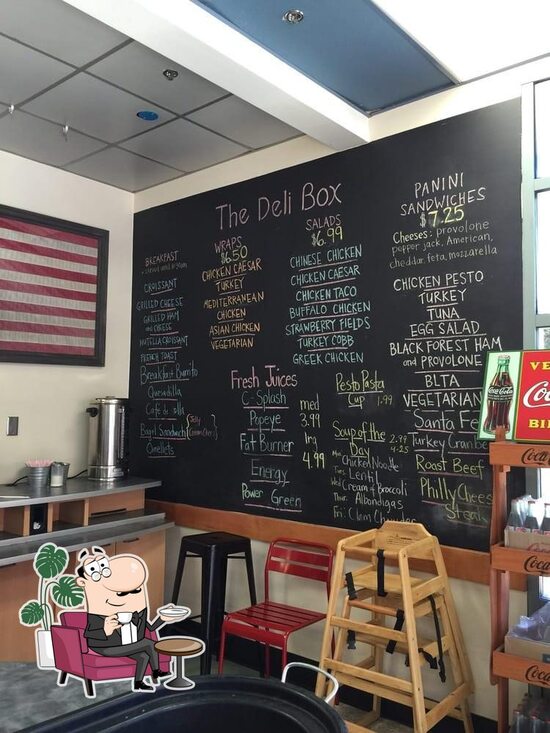 The Deli Box
BREAKFAST
CROISSANT
GRILLED CHEESE
GRILLED HAM
AND CHEESE
NUTELLA CROISSANT
FRENCH TOAST
Breakfast Burrito
Quesadilla
Café de olla
Bagel Sandwich (Jelly
Cream Cheese)
Omelets
WRAPS
$6.50
CHICKEN CAESAR
TURKEY
MEDITERRANEAN
CHICKEN
ASIAN CHICKEN
VEGETARIAN
SALADS
$6.99
CHINESE CHICKEN
CHICKEN CAESAR
CHICKEN TACO
BUFFALO CHICKEN
STRAWBERRY FIELDS
TURKEY COBB
GREEK CHICKEN
PANINI
SANDWICHES
$7.25
Cheeses: provolone
pepper jack, American,
cheddar, feta, mozzarella
CHICKEN PESTO
TURKEY
TUNA
EGG SALAD
BLACK FOREST HAM
and PROVOLONE
BLTA
VEGETARIAN
Santa Fe
Turkey Cranbe
Roast Beef
Philly Chees
Steak
Fresh Juices
C-Splash
Popeye
Fat Burner
Energy
Power Green
med
3.99
lrg
4.99
Pesto Pasta
Cup 1.99
Soup of the 2.99
Day 4.25
Mon Chicken Noodle
Tues. Lentil
Wed Cream of Broccoli
Thur. Albondigas
Fri: Clam Chowder
VE
Coca-Cola
Co
BI
Coca-Cola
Coca-Cola
Coca-Cola
Coca-Cola